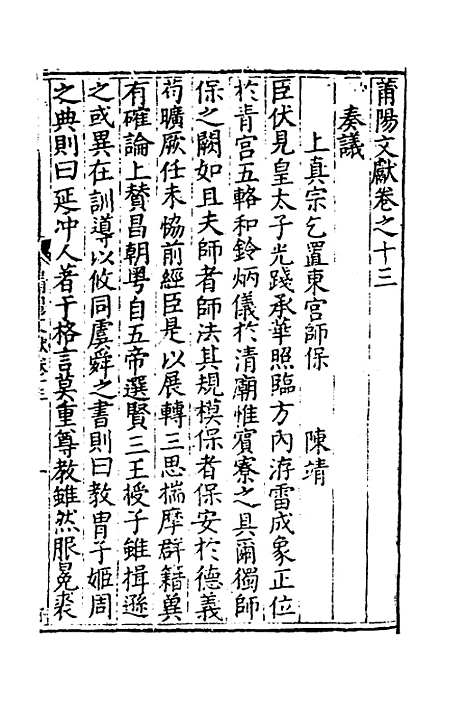 莆陽文獻卷之十三
奏議
上真宗乞置東宮師保　陳靖
臣伏見皇太子光踐承華照臨方內洊雷成象正位
於青宮五輅和鈴炳儀於清廟惟賓寮之具爾獨師
保之闕如且夫師者師法其規模保者保安於德義
苟曠厥任未恊前經臣是以展轉三思揣摩群籍冀
有確論上賛昌朝粤自五帝選賢三王授子雖揖遜
之或異在訓導以攸同虞舜之書則曰教胄子姬周
之典則曰延冲人著于格言莫重尊教雖然服冕裘